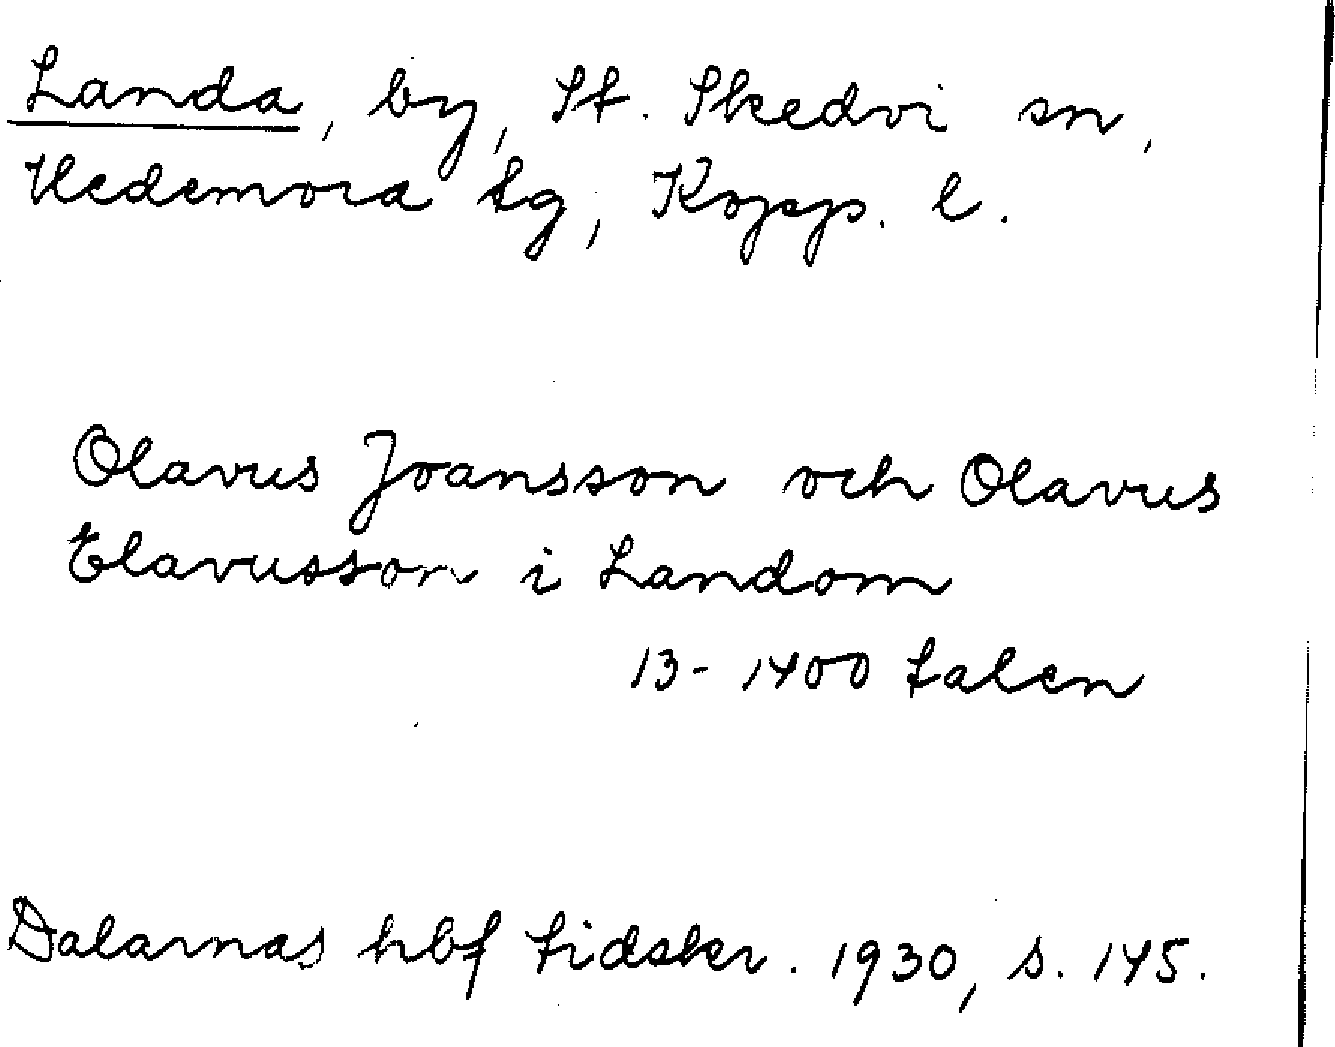 Landa, by, St. Skedvi sn,
Hedemora tg, Kopp. l.
Olavus Joansson och Olavus
Elavusson i Landom
13-1400 talen
Dalarnas hbf tidskr. 1930, s. 145.